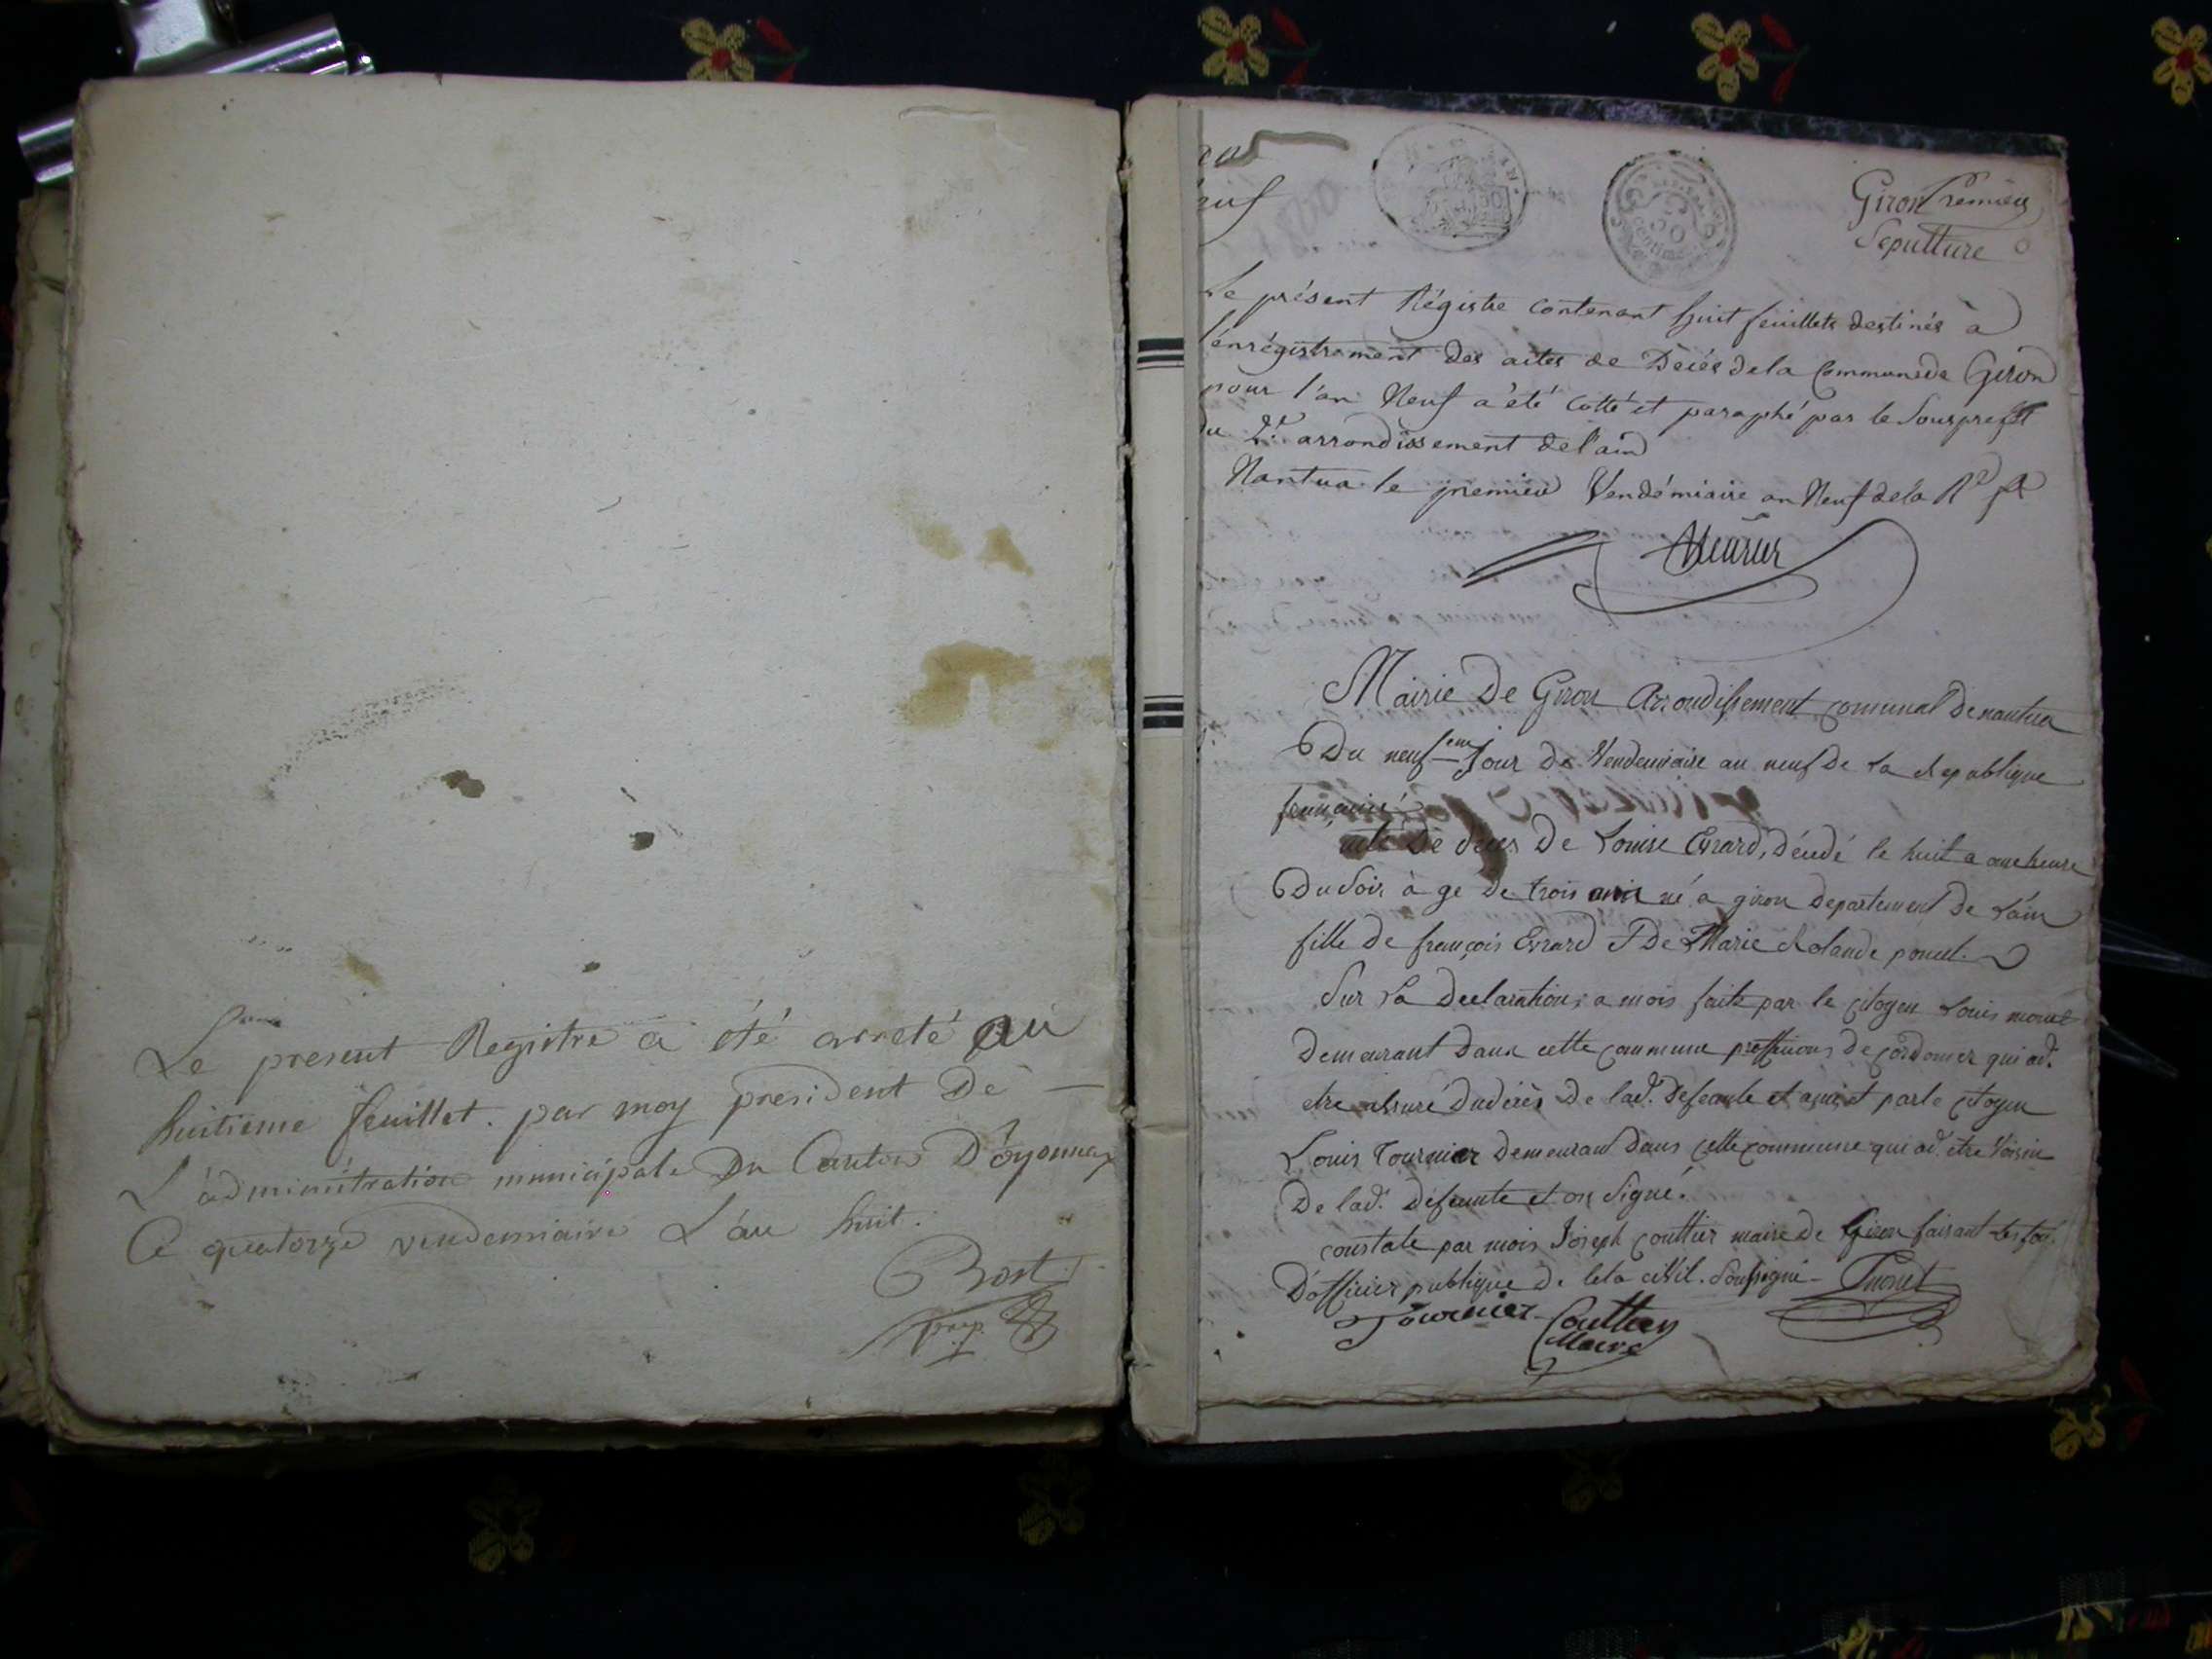 Le present Registre a été arreté au
huitieme feuillet. par moy president De —
L'administration municipale Du Canton D'oyonnax
Ce quatorze vendemiaire L'an huit.
Bost
Giron Premier
Sepulture
50
centimes
Le présent Régistre contenant huit feuillets destinés à
l'enrégistrement des actes de Décés de la Commune de Giron
pour l'an Neuf a été cotté et paraphé par le Sousprefet
du 2.e arrondissement de l'ain
Nantua le premier Vendémiaire an Neuf de la R
Mairie De Giron Arrondissement comunal De nantua
Du neuf eme Jour De Vendemiaire an neuf De La Republique
française
acte De décès De Louise Evrard, Décédé le huit a heure
Du Soir à ge De trois né a giron Departement De L'ain
fille De françois Evrard De Marie Rolande poncet.
Sur La Declaration a mois faite par le citoyen Louis monet
Demeurant Dans cette commune proffession de cordonier qui ad.
etre assuré du décès De lad. Defeunte et par le citoyen
Louis Tournier Demeurant Dans cette commune qui ad. etre Voisin
De lad. Defeunte et on Signé.
constate par mois Joseph Couttier maire De Giron faisant Les fon.
D'officier publique De leta civil. Soussigné - Monet
Tournier Couttier
Maire